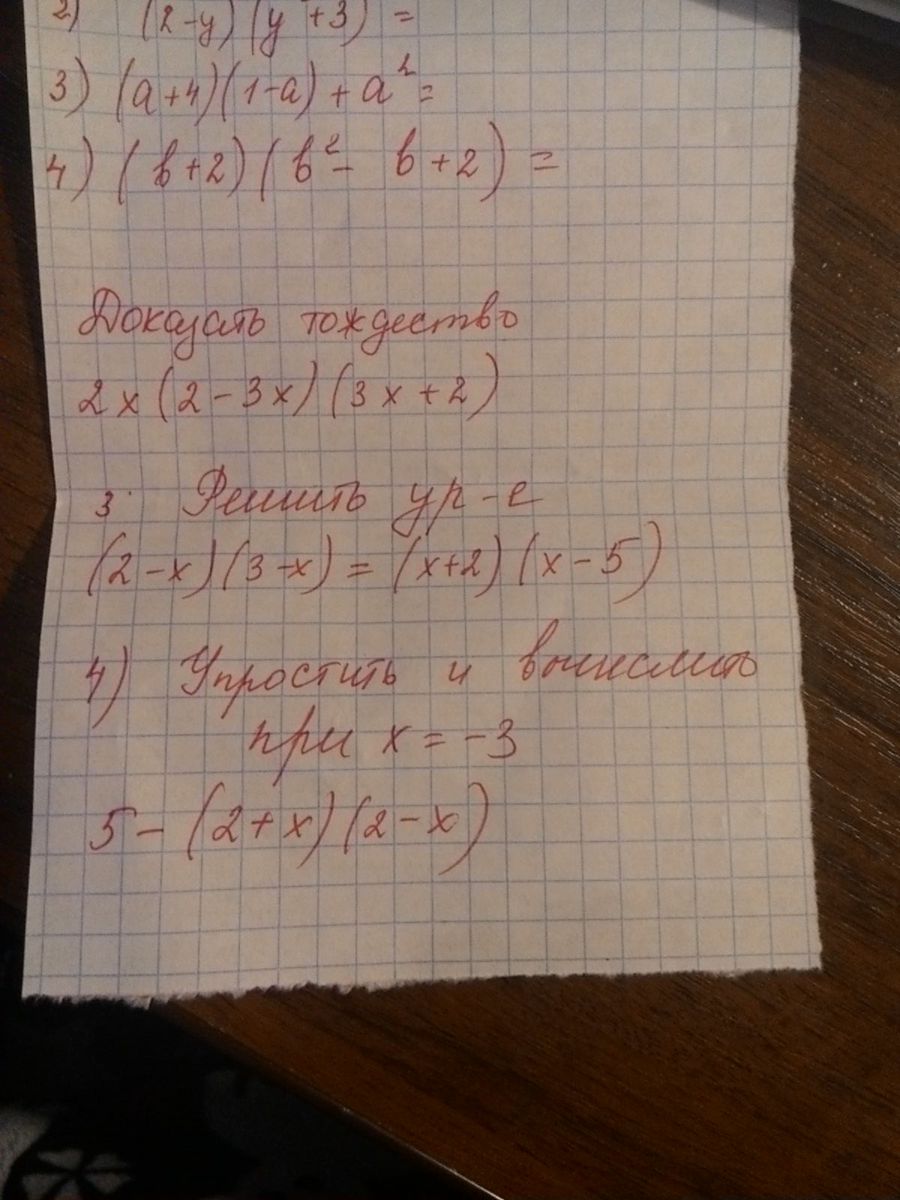 2) (2-y)(y +3) =
3) (a+4)(1-a)+a²=
4) (b+2)(b²- b+2) =
Доказать тождество
2x(2-3x)(3x+2)
3. Решить ур-е
(2-x)(3-x) = (x+2)(x-5)
4) Упростить и вычислить
при x = -3
5-(2+x)(2-x)